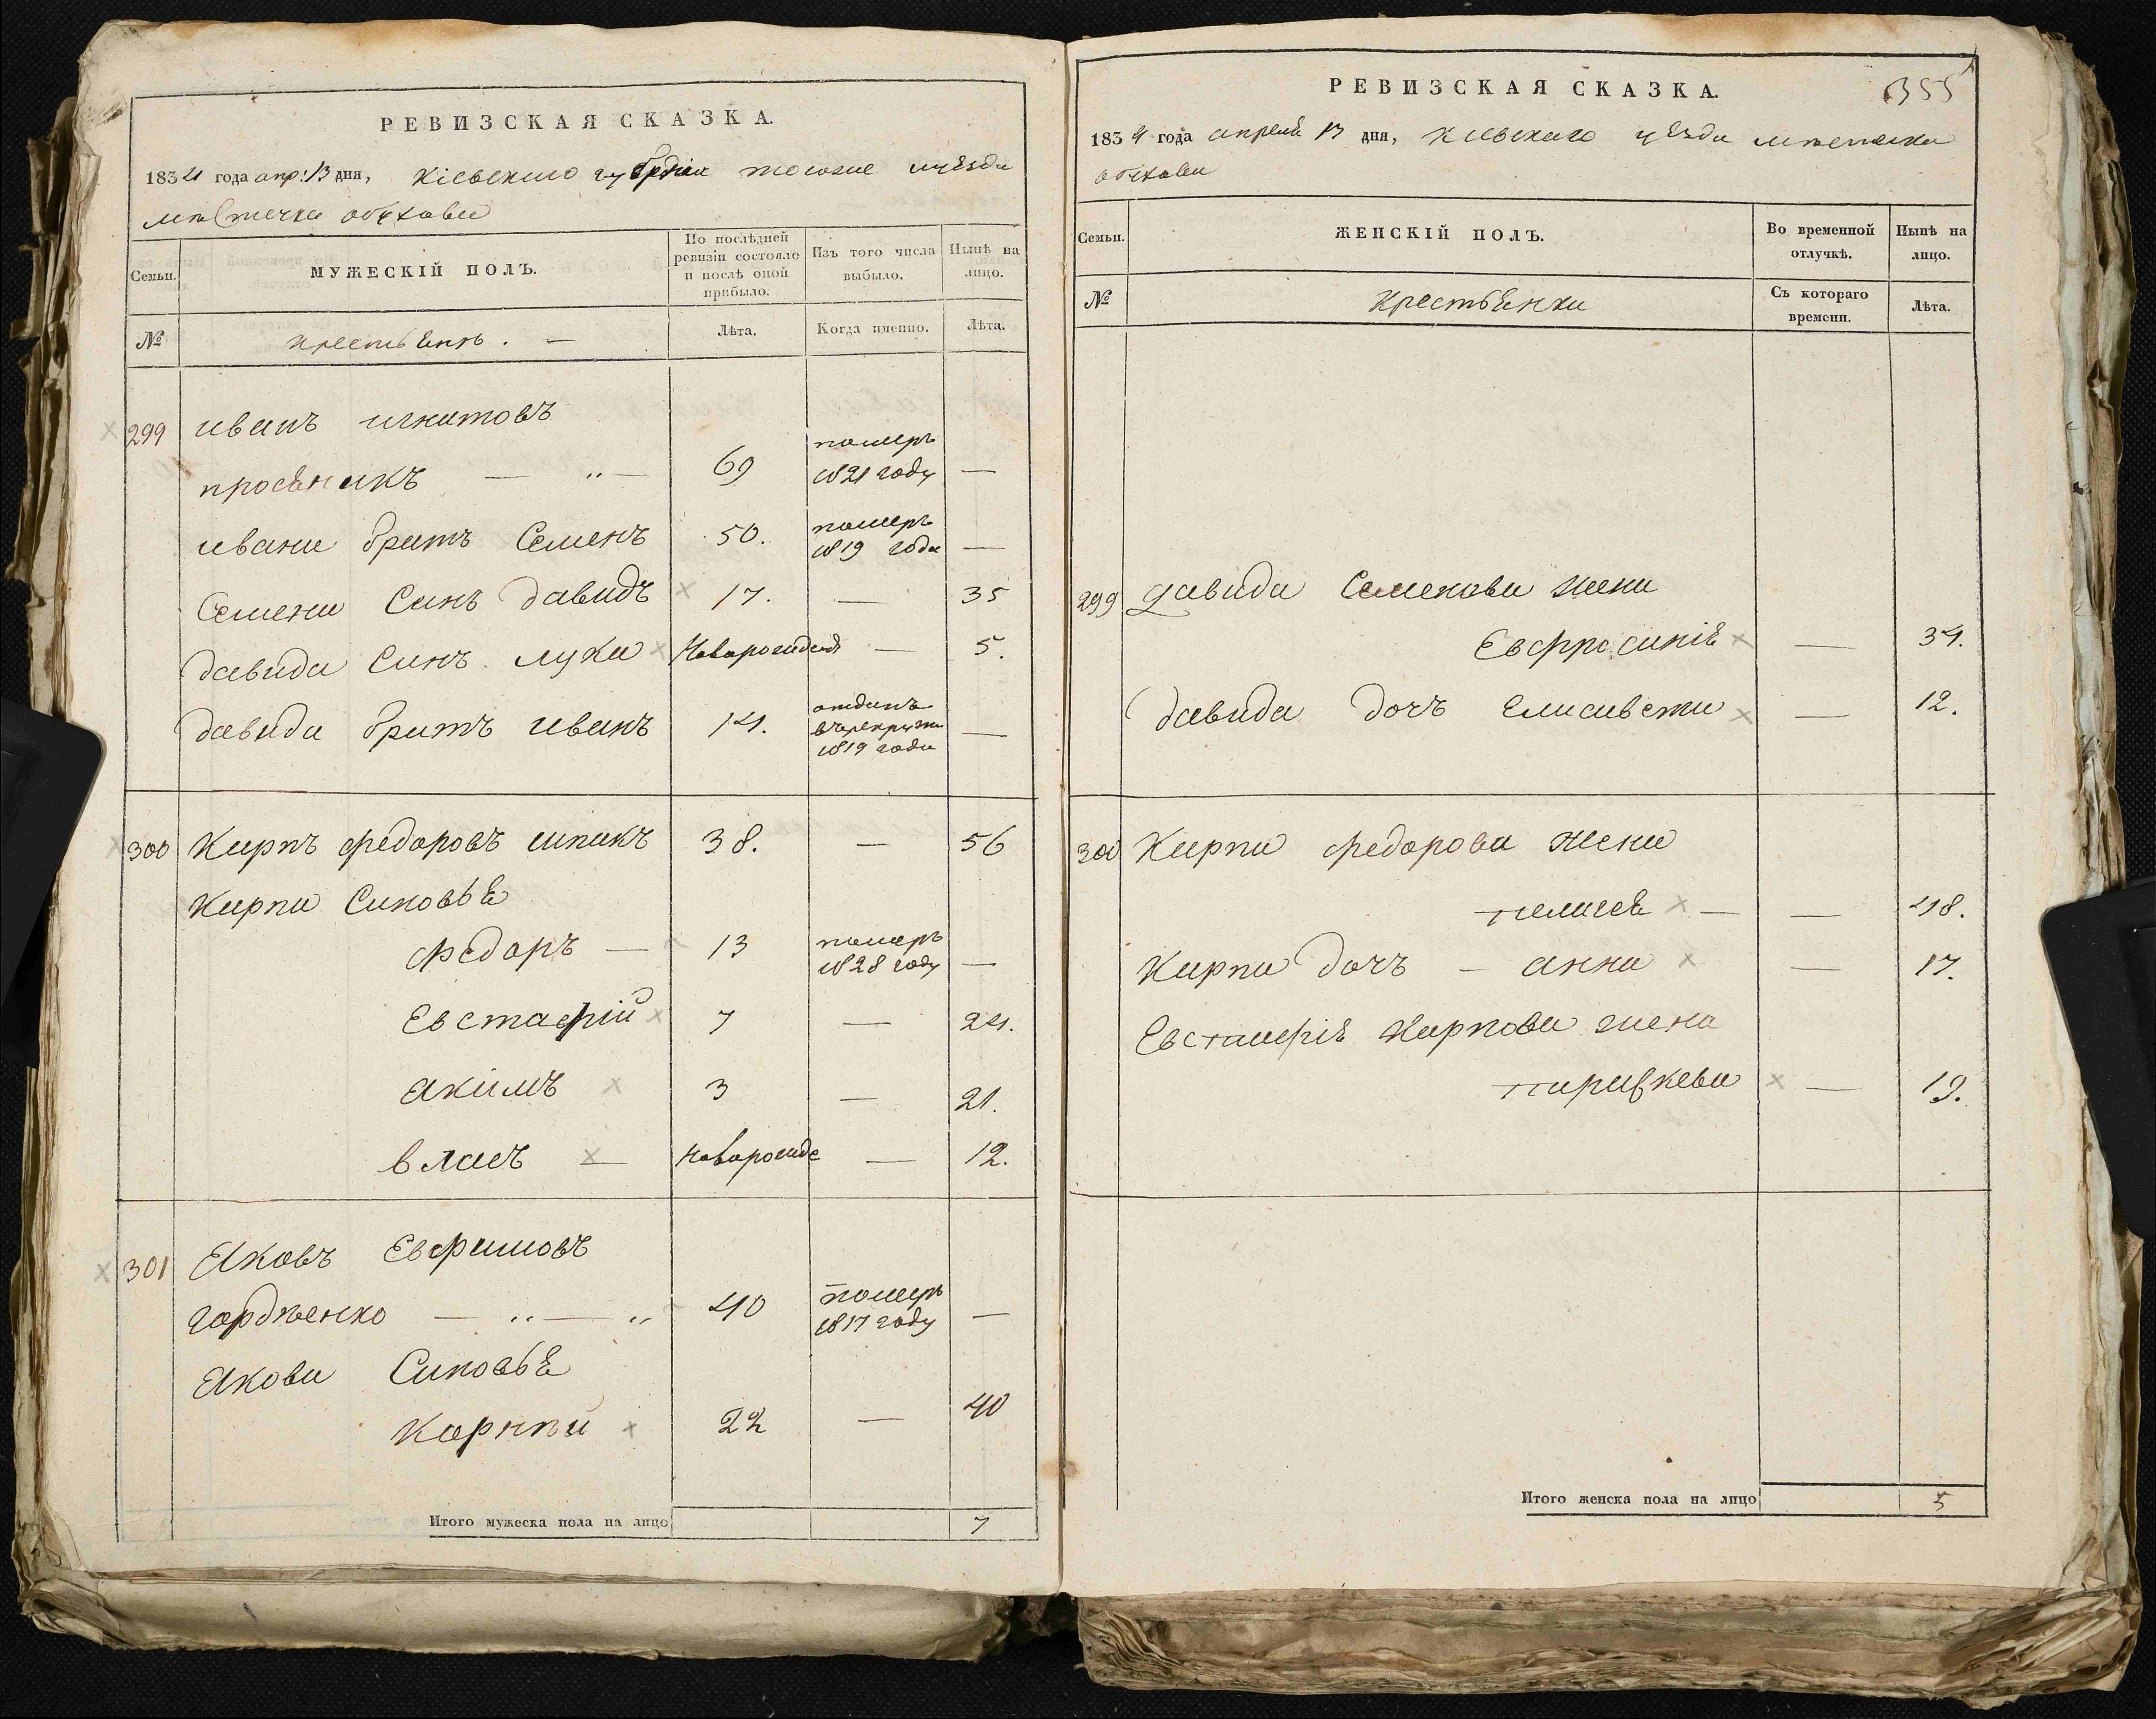 РЕВИЗСКАЯ СКАЗКА.
1834 года апр: 13 дня, Кіевскаго губрніи тогоже уѣзда
мѣстечка обухова
Семьи.
МУЖЕСКІЙ ПОЛЪ.
По послѣдней ревизіи состояло и послѣ оной прибыло.
Изъ того числа выбыло.
Нынѣ на лицо.
№
крестьянъ . —
Лѣта.
Когда именно.
Лѣта.
299 иванъ игнатовъ
просяникъ — „ — 69 померъ 1821 году —
ивана братъ Семенъ 50. померъ 1819 года —
Семена Синъ давидъ 17. — 35
давида Синъ лука Новорожденъ — 5.
давида братъ иванъ 14. отданъ въ рекруты 1819 года —
300 Карпъ федоровъ шпакъ 38. — 56
Карпа Синовья
федоръ — 13 померъ 1828 году —
Евстафій 7 — 24.
акимъ 3 — 21.
власъ — Новорожде — 12.
301 Яковъ Евфимовъ
гордѣенко — „ — „ 40 померъ 1817 году —
Якова Синовья
Карпъ 22 — 40
Итого мужеска пола на лицо 7
РЕВИЗСКАЯ СКАЗКА.
355
1834 года апреля 13 дня, Кіевскаго уѣзда мѣстечка
обухова
Семьи.
ЖЕНСКІЙ ПОЛЪ.
Во временной отлучкѣ.
Нынѣ на лицо.
№
Крестьянки
Съ котораго времени.
Лѣта.
299 давида Семенова жена
Евфросинія — 34.
давида дочъ Елисавета — 12.
300 Карпа федорова жена
пелагея — — 48.
Карпа дочъ — анна — 17.
Евстафія Карпова жена
парасkева — 19.
Итого женска пола на лицо 5